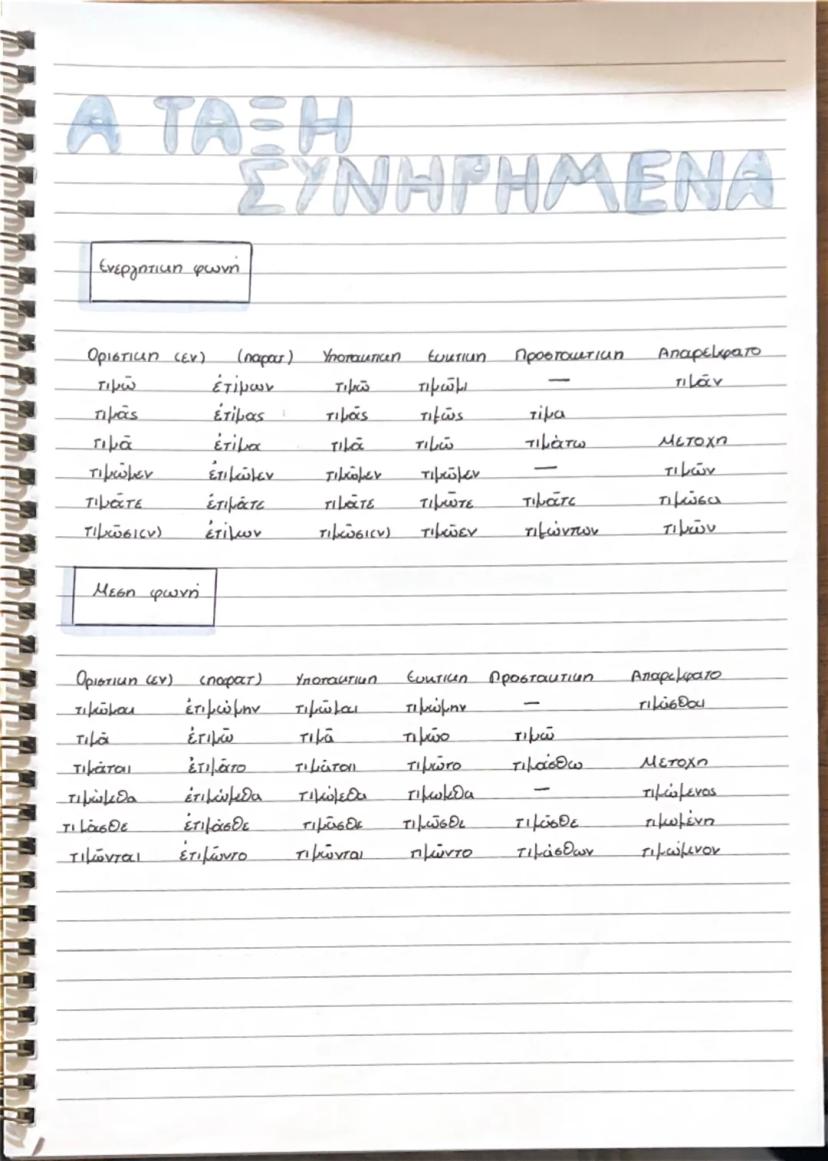 Α ΤΑΞΗ
ΣΥΝΗΡΗΜΕΝΑ
Ενεργητικη φωνή
Οριστικη (εν) (παρατ) Υποτακτικη Ευκτικη Προστακτικη Απαρεμφατο
τιμῶ ἐτίμων τιμῶ τιμῷμι — τιμᾶν
τιμᾷς ἐτίμας τιμᾷς τιμῷς τίμα
τιμᾷ ἐτίμα τιμᾷ τιμῷ τιμάτω Μετοχη
τιμῶμεν ἐτιμῶμεν τιμῶμεν τιμῷμεν — τιμῶν
τιμᾶτε ἐτιμᾶτε τιμᾶτε τιμῷτε τιμᾶτε τιμῶσα
τιμῶσι(ν) ἐτίμων τιμῶσι(ν) τιμῷεν τιμώντων τιμῶν
Μεση φωνή
Οριστικη (εν) (παρατ) Υποτακτικη Ευκτικη Προστακτικη Απαρεμφατο
τιμῶμαι ἐτιμώμην τιμῶμαι τιμῴμην — τιμᾶσθαι
τιμᾷ ἐτιμῶ τιμᾷ τιμῷο τιμῶ
τιμᾶται ἐτιμᾶτο τιμᾶται τιμῷτο τιμάσθω Μετοχη
τιμώμεθα ἐτιμώμεθα τιμώμεθα τιμῳμεθα — τιμώμενος
τιμᾶσθε ἐτιμᾶσθε τιμᾶσθε τιμῷσθε τιμᾶσθε τιμωμένη
τιμῶνται ἐτιμῶντο τιμῶνται τιμῷντο τιμάσθων τιμώμενον